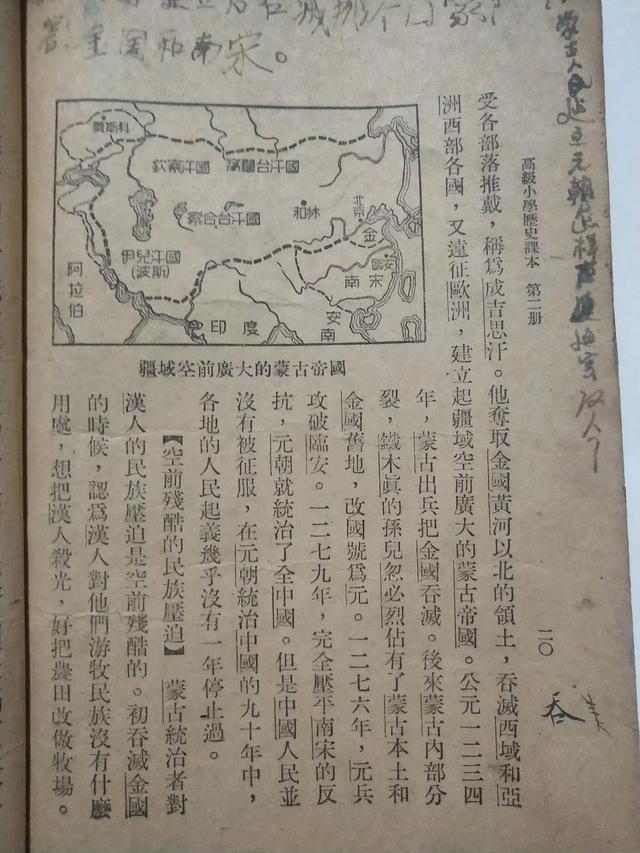 國和南宋。
高級小學歷史課本 第二册
二〇
吞
受各部落推戴，稱爲成吉思汗。他奪取金國黃河以北的領土，吞滅西域和亞
洲西部各國，又遠征歐洲，建立起疆域空前廣大的蒙古帝國。公元一二三四
年，蒙古出兵把金國吞滅。後來蒙古內部分
裂，鐵木眞的孫兒忽必烈佔有了蒙古本土和
金國舊地，改國號爲元。一二七六年，元兵
攻破臨安。一二七九年，完全壓平南宋的反
抗，元朝就統治了全中國。但是中國人民並
沒有被征服，在元朝統治中國的九十年中，
各地的人民起義幾乎沒有一年停止過。
【空前殘酷的民族壓迫】 蒙古統治者對
漢人的民族壓迫是空前殘酷的。初吞滅金國
的時候，認爲漢人對他們游牧民族沒有什麽
用處，想把漢人殺光，好把農田改做牧場。
莫斯科
欽察汗國
窩闊台汗國
察合台汗國
和林
北京
金
伊兒汗國
(波斯)
臨安
南宋
阿拉伯
印度
安南
疆域空前廣大的蒙古帝國